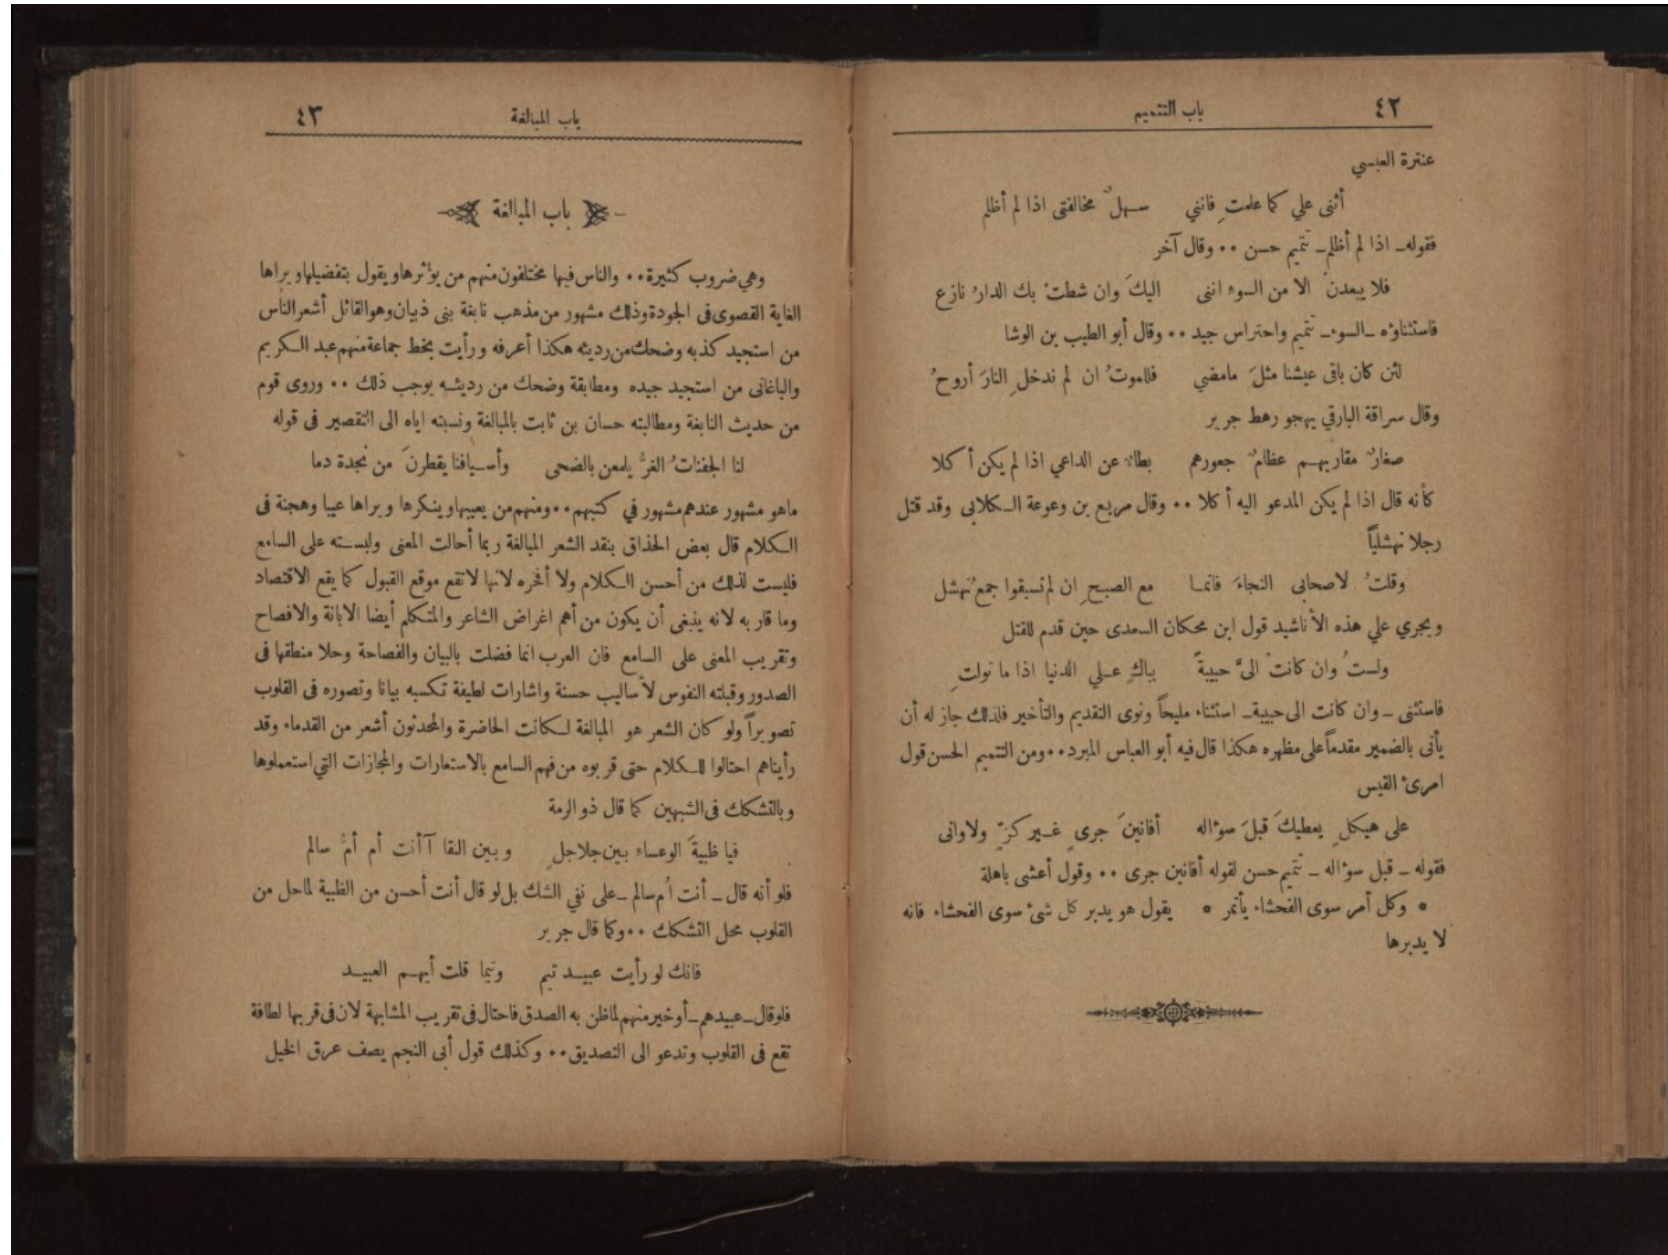 ٤٢
باب التتميم
عنترة العبسي
أثنى علي كما علمتِ فانني سهلٌ مخالفتى اذا لم أظلم
فقوله ـ اذا لم أظلم ـ تتميم حسن ٠٠ وقال آخر
فلا يبعدنْ الا من السوء اننى اليكَ وان شطتْ بك الدارُ نازع
فاستثناؤه ـ السوء ـ تتميم واحتراس جيد ٠٠ وقال أبو الطيب بن الوشا
لئن كان باقى عيشنا مثلَ مامضي فللموتُ ان لم ندخلِ النارَ أروحُ
وقال سراقة البارقي يهجو رهط جرير
صغارٌ مقاريهم عظامٌ جعورهم بطاءٌ عن الداعي اذا لم يكن أكلا
كأنه قال اذا لم يكن المدعو اليه أكلا ٠٠ وقال مربع بن وعوعة الكلابى وقد قتل
رجلا نهشلياً
وقلتُ لاصحابى النجاءَ فانما مع الصبحِ ان لم تسبقوا جمعُ نهشل
ويجري علي هذه الأناشيد قول ابن محكان السعدى حين قدم للقتل
ولستُ وان كانتْ الىَّ حبيبةً بباكٍ علي الدنيا اذا ما تولتِ
فاستثنى ـ وان كانت الى حبيبة ـ استثناء مليحاً ونوى التقديم والتأخير فلذلك جاز له أن
يأتى بالضمير مقدماً على مظهره هكذا قال فيه أبو العباس المبرد ٠٠ ومن التتميم الحسن قول
امرئ القيس
على هيكلٍ يعطيكَ قبلَ سؤاله أفانينَ جرىٍ غير كزٍّ ولاوانى
فقوله ـ قبل سؤاله ـ تتميم حسن لقوله أفانين جرى ٠٠ وقول أعشى باهلة
* وكل أمر سوى الفحشاء يأتمر * يقول هو يدبر كل شئ سوى الفحشاء فانه
لا يدبرها
باب المبالغة
٤٣
باب المبالغة
وهي ضروب كثيرة ٠٠ والناس فيها مختلفون منهم من يؤثرها ويقول بتفضيلها ويراها
الغاية القصوى فى الجودة وذلك مشهور من مذهب نابغة بنى ذبيان وهو القائل أشعر الناس
من استجيد كذبه وضحك من رديئه هكذا أعرفه ورأيت بخط جماعة منهم عبد الكريم
والباغانى من استجيد جيده ومطابقة وضحك من رديئه يوجب ذلك ٠٠ وروى قوم
من حديث النابغة ومطالبته حسان بن ثابت بالمبالغة ونسبته اياه الى التقصير فى قوله
لنا الجفناتُ الغرُّ يلمعن بالضحى وأسيافنا يقطرنَ من نجدة دما
ماهو مشهور عندهم مشهور في كتبهم ٠٠ ومنهم من يعيبها وينكرها ويراها عيبا وهجنة فى
الكلام قال بعض الحذاق بنقد الشعر المبالغة ربما أحالت المعنى ولبسته على السامع
فليست لذلك من أحسن الكلام ولا أفخره لانها لاتقع موقع القبول كما يقع الاقتصاد
وما قاربه لانه ينبغى أن يكون من أهم اغراض الشاعر والمتكلم أيضا الابانة والافصاح
وتقريب المعنى على السامع فان العرب انما فضلت بالبيان والفصاحة وحلا منطقها فى
الصدور وقبلته النفوس لأساليب حسنة واشارات لطيفة تكسبه بيانا وتصوره فى القلوب
تصويراً ولو كان الشعر هو المبالغة لكانت الحاضرة والمحدثون أشعر من القدماء وقد
رأيناهم احتالوا للكلام حتى قربوه من فهم السامع بالاستعارات والمجازات التي استعملوها
وبالتشكك فى الشبهين كما قال ذو الرمة
فيا ظبيةَ الوعساء بين جلاجلٍ وبين النقا آأنت أم أمُّ سالم
فلو أنه قال ـ أنت أم سالم ـ على نفي الشك بل لو قال أنت أحسن من الظبية لماحل من
القلوب محل التشكك ٠٠ وكما قال جرير
فانك لو رأيت عبيد تيم وتيما قلت أيهم العبيد
فلوقال ـ عبيدهم ـ أو خير منهم لماظن به الصدق فاحتال فى تقريب المشابهة لان فى قربها لطافة
تقع فى القلوب وتدعو الى التصديق ٠٠ وكذلك قول أبى النجم يصف عرق الخيل